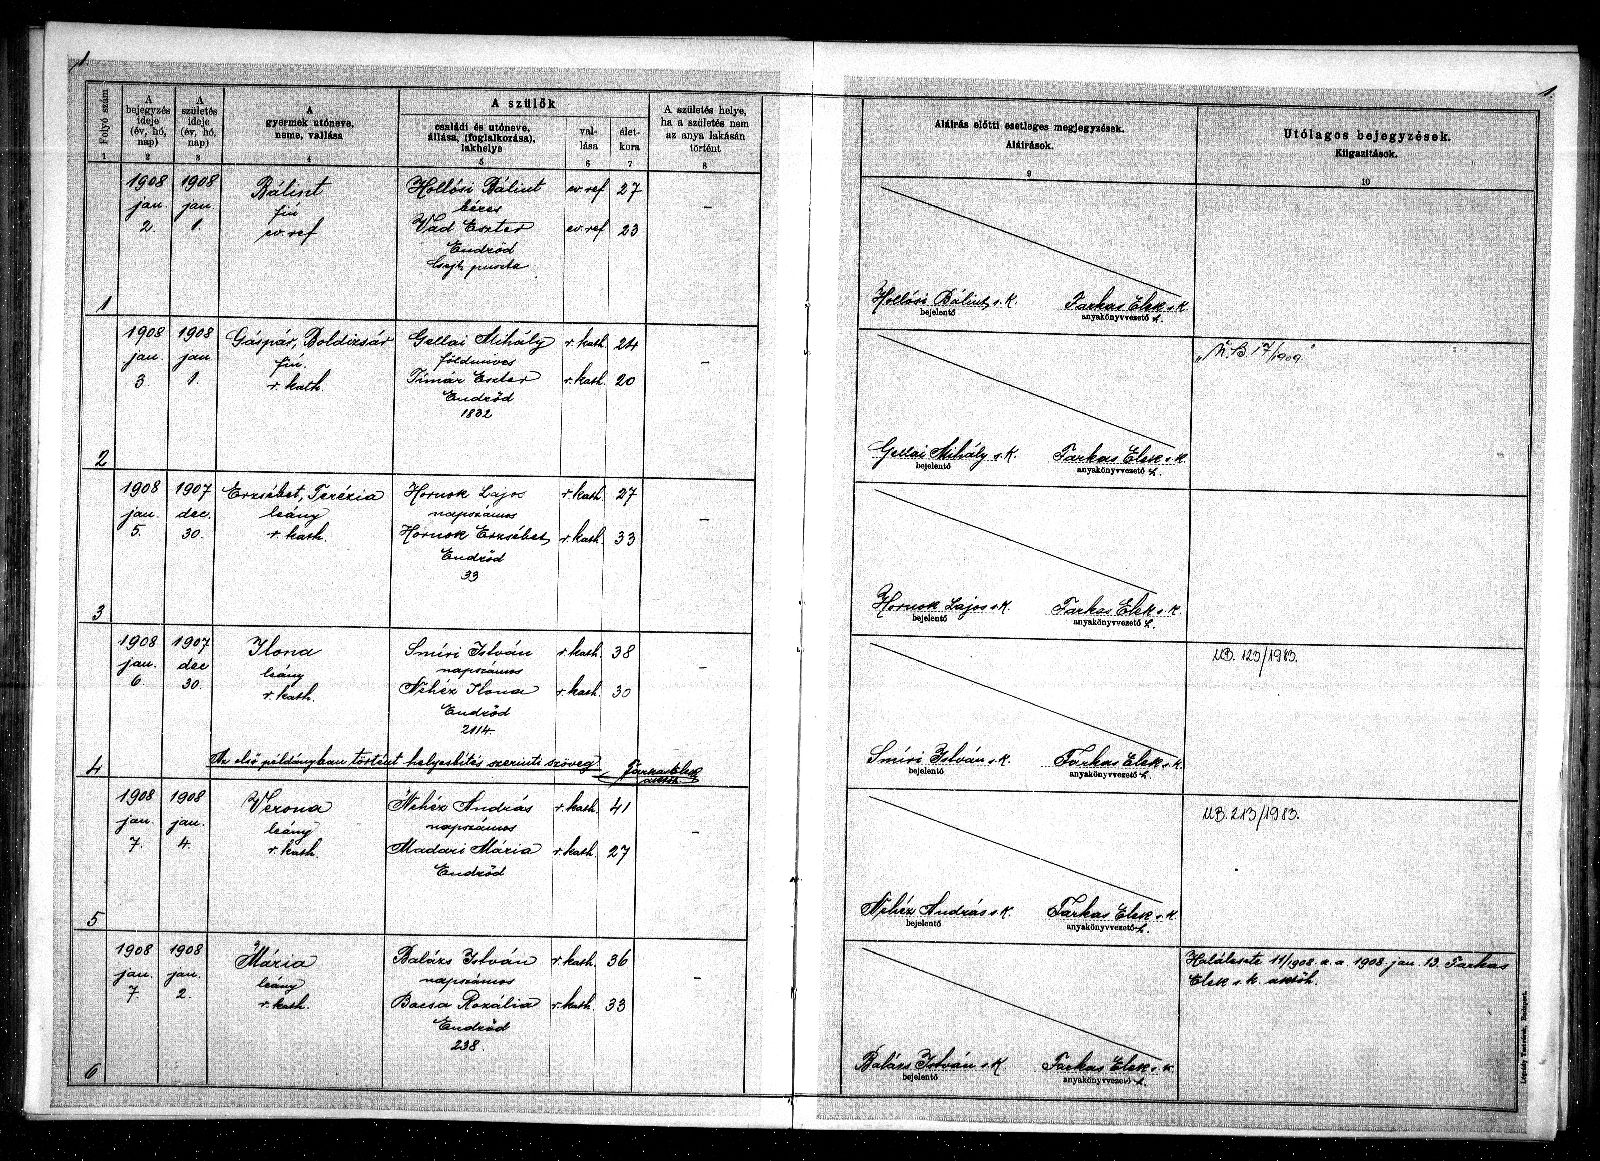 1.
1.
Folyó szám
A bejegyzés ideje (év, hó, nap)
A születés ideje (év, hó, nap)
A gyermek utóneve, neme, vallása
A szülők
családi és utóneve, állása, (foglalkozása), lakhelye
vallása
életkora
A születés helye, ha a születés nem az anya lakásán történt
Aláírás előtti esetleges megjegyzések.
Aláírások.
Utólagos bejegyzések.
Kiigazítások.
1 2 3 4 5 6 7 8 9 10
1908 1908 Bálint Hollósi Bálint ev. ref 27
jan. jan. fiú béres –
2. 1. ev. ref Vad Eszter ev. ref 23
Endrőd
Csejt puszta
1
Hollósi Bálint s. k. Farkas Elek s. k.
bejelentő anyakönyvvezető h.
1908 1908 Gáspár, Boldizsár Gellai Mihály r. kath. 24
jan. jan. fiú. földmives –
3. 1. r. kath. Tímár Eszter r. kath. 20
Endrőd
1832
2
„N. B 17/1909"
Gellai Mihály s. k. Farkas Elek s. k.
bejelentő anyakönyvvezető h.
1908 1907 Erzsébet, Terézia Hornok Lajos r. kath. 27
jan. dec. leány napszámos –
5. 30. r. kath. Hornok Erzsébet r. kath. 33
Endrőd
33
3
Hornok Lajos s. k. Farkas Elek s. k.
bejelentő anyakönyvvezető h.
1908 1907 Ilona Smíri István r. kath. 38
jan. dec leány napszámos –
6 30. r. kath. Nehéz Ilona r. kath. 30
Endrőd
2114.
Az első példányban történt helyesbítés szerinti szöveg Farkas Elek
4
UB. 123/1983.
Smíri István s. k. Farkas Elek s. k.
bejelentő anyakönyvvezető h.
1908 1908 Verona Nehéz András r. kath. 41
jan. jan. leány napszámos –
7. 4. r. kath. Madari Mária r. kath. 27
Endrőd
5
UB. 213/1983.
Nehéz András s. k. Farkas Elek s. k.
bejelentő anyakönyvvezető h.
1908 1908 Mária Balázs István r. kath. 36
jan. jan. leány napszámos –
7 2. r. kath. Bacsa Rozália r. kath. 33
Endrőd
238.
6
Halálesete 11/1908 a. a. 1908 jan. 13. Farkas
Elek s. k.
Balázs István s. k. Farkas Elek s. k.
bejelentő anyakönyvvezető h.